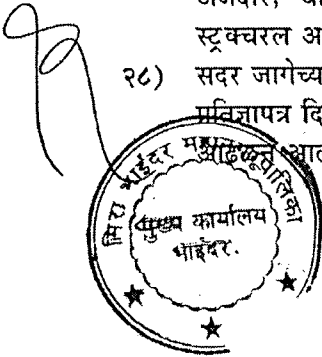 स्ट्रक्चरल अ
२८) सदर जागेच्य
प्रतिज्ञापत्र दि
मिरा भाईंदर महानगरपालिका
मुख्य कार्यालय
भाईंदर.